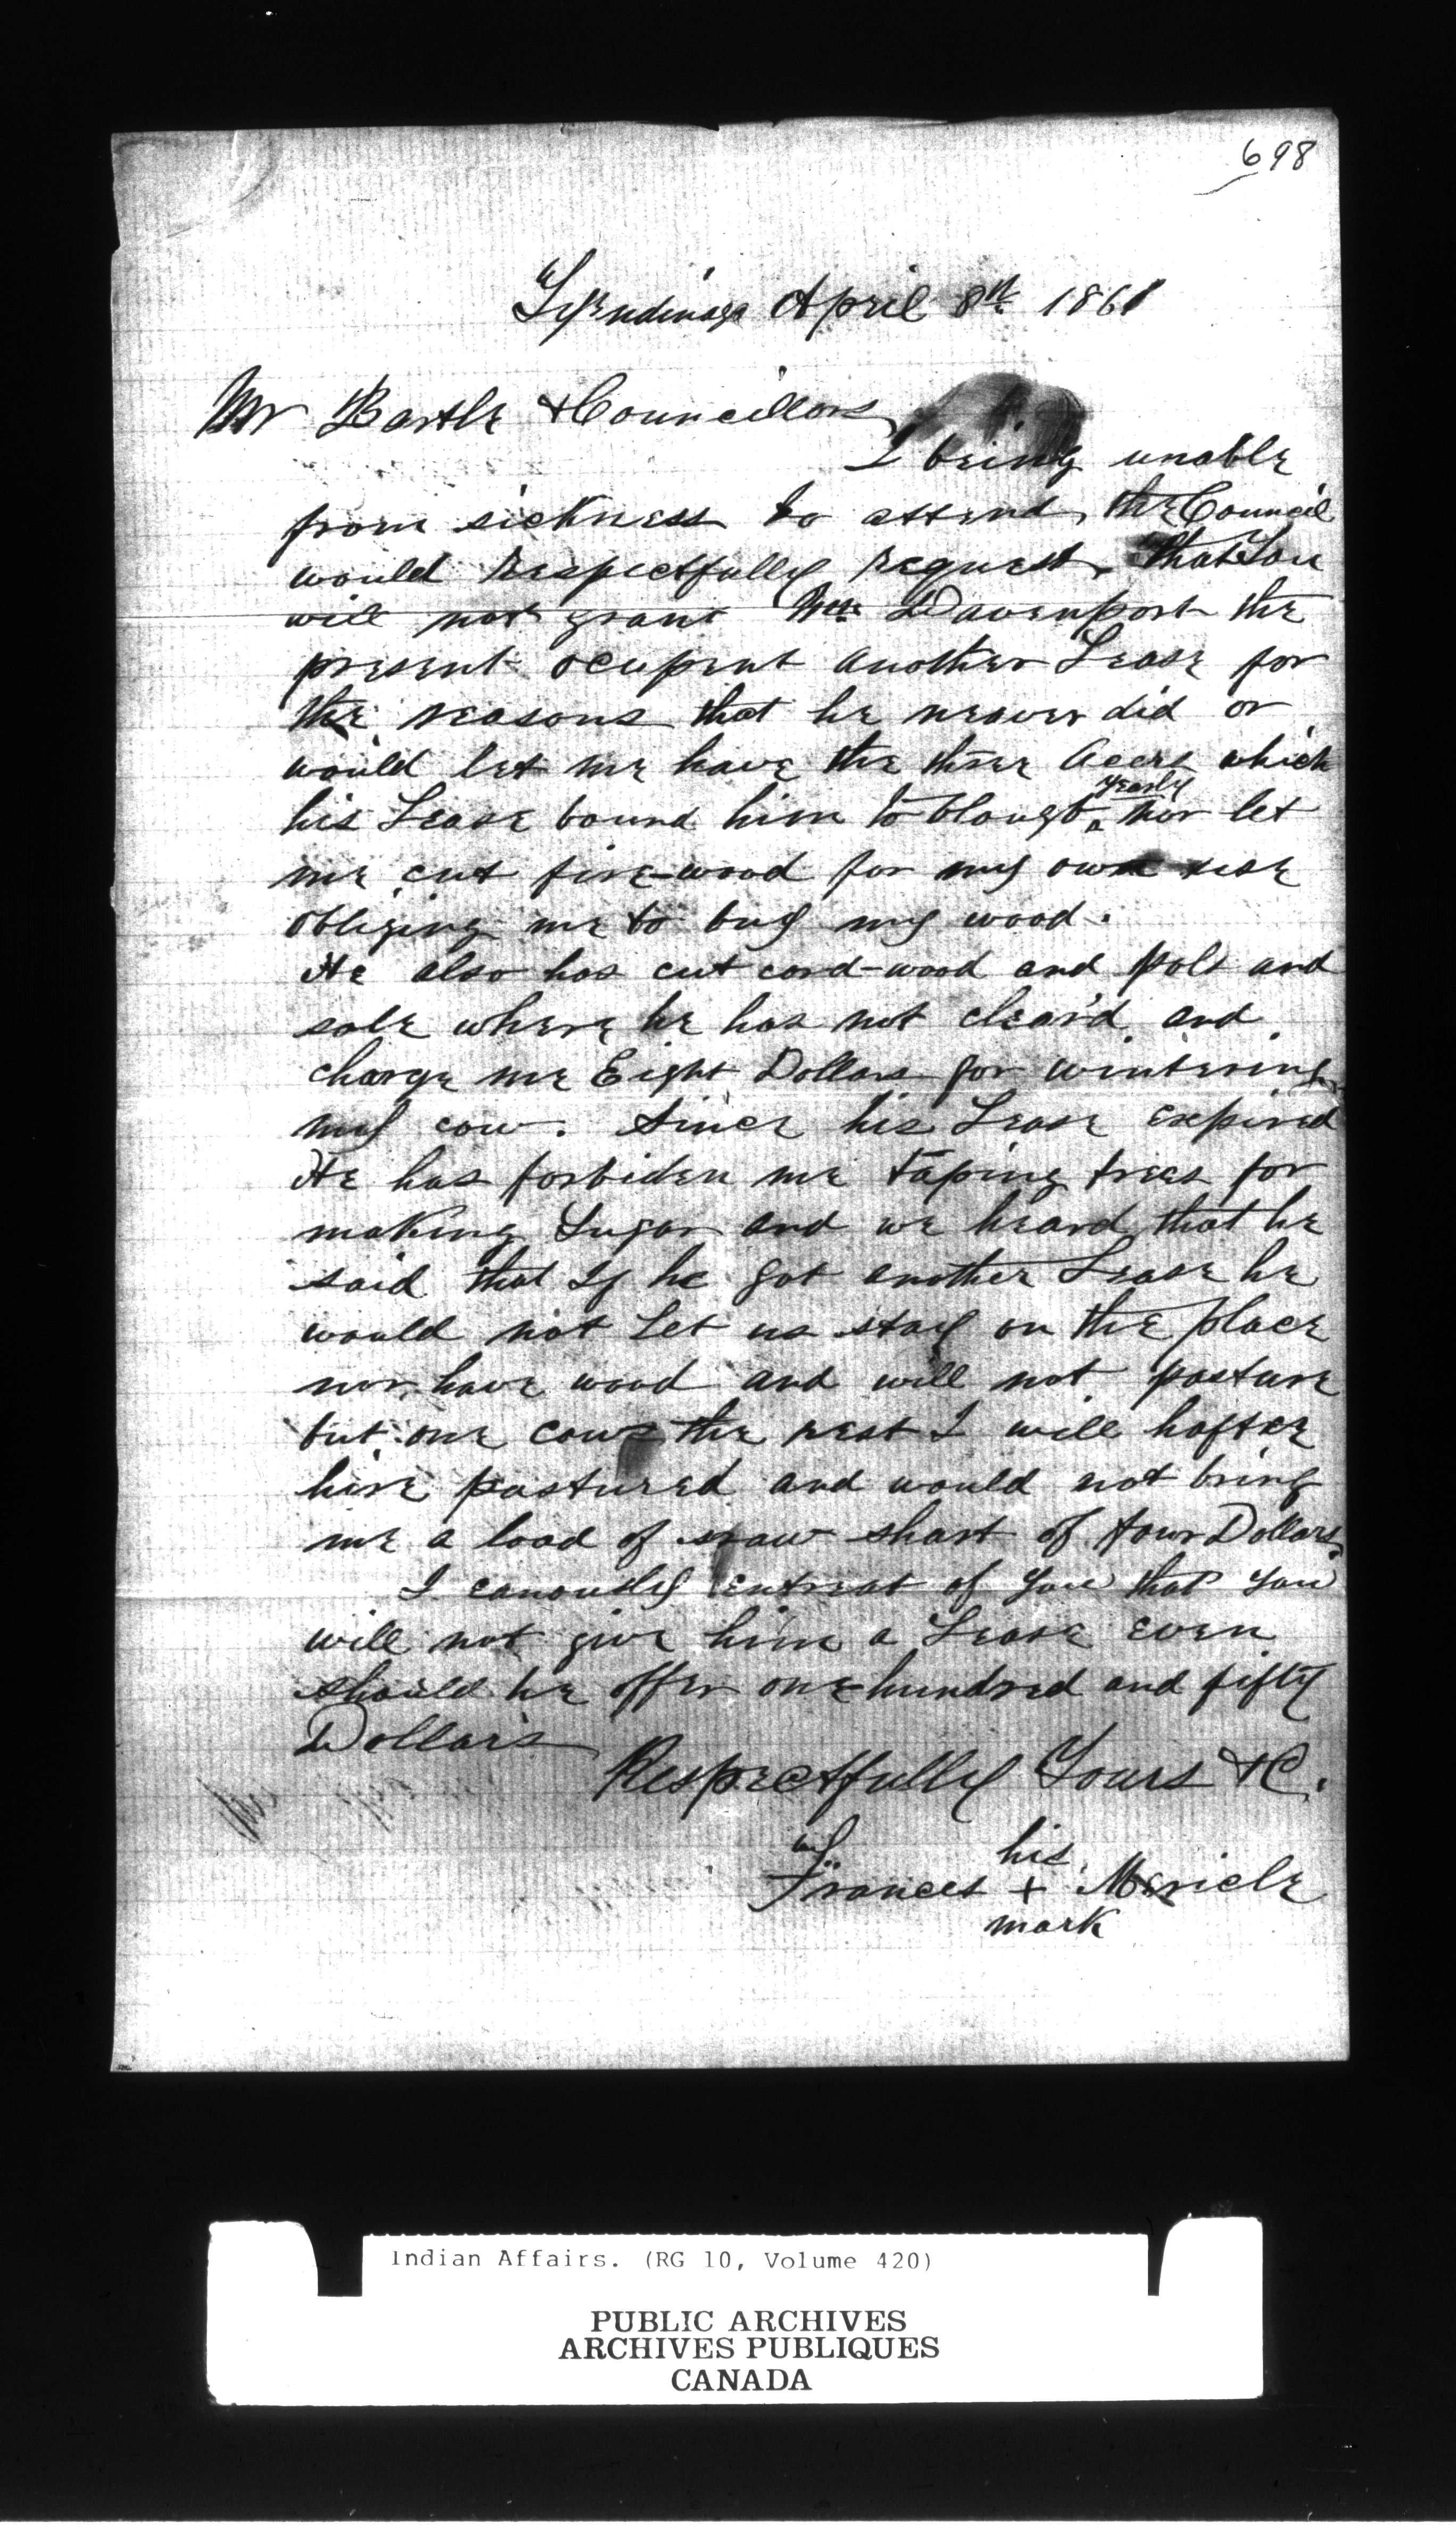 698
Tyendinaga April 8th 1861
Mr Bartle & Councillors
I being unable
from sickness to attend the Council
would respectfully request that You
will not grant Mr Davenport the
present ocupent another Lease for
the reasons that he neaver did or
would let me have the three Acers which
yearly
his Lease bound him to Plough nor let
me cut fire-wood for my own use
obliging me to buy my wood.
He also has cut cord-wood and sold and
sale where he has not clear'd and
charge me Eight Dollars for wintering
my cow. Since his Lease expired
He has forbiden me taping trees for
making Sugar and we heard that he
said that If he got another Lease he
would not Let us stay on the place
nor have wood and will not pasture
but one cow the rest I will hafter
hire pastured and would not bring
me a load of straw short of four Dollars.
I entreat of you that you
will not give him a Lease even
should he offer one hundred and fifty
Dollars
Respectfully Yours &C.
his
Frances + Maricle
mark
Indian Affairs. (RG 10, Volume 420)
PUBLIC ARCHIVES
ARCHIVES PUBLIQUES
CANADA